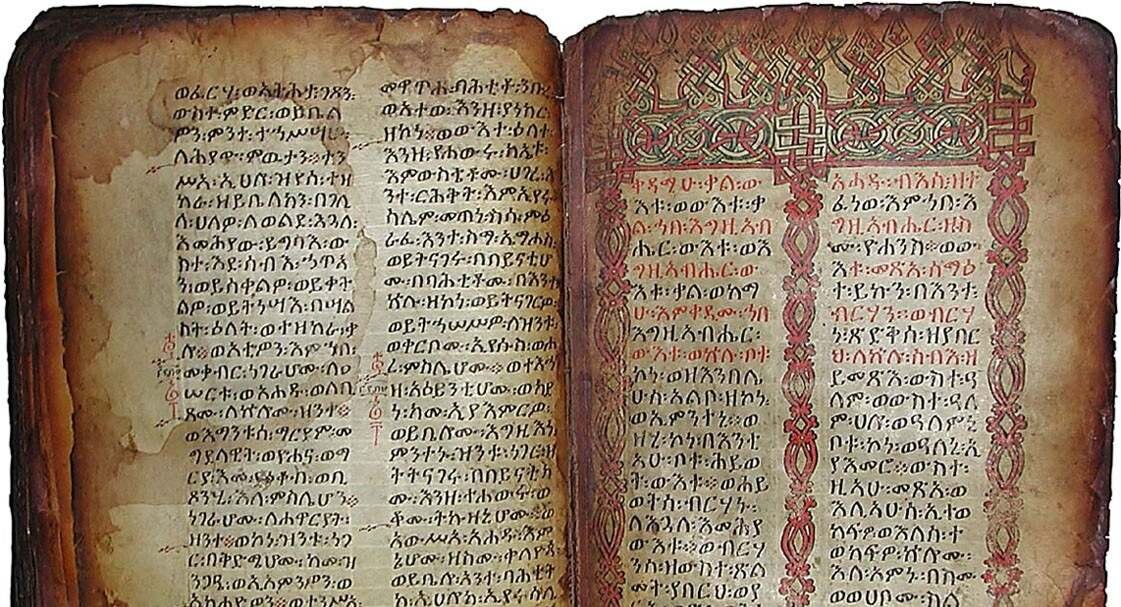 ወፈርሃ፡ወአትሐታ፡ገጾን፡
ውስተ፡ምድር፡ወይቤል
ዎን፡ምንተ፡ተኀሥሣሁ፡
ለሕያው፡ምውተን፡፡ተን
ሥአ፡ኢሀሎ፡ዝየሰ፡ተዘ
ከራ፡ዘይቤ፡ለክን፡በገሊ
ላ፡ሀለዎ፡ለወልደ፡እጓለ፡
እመሕያው፡ይግባእ፡ው
ስተ፡እደ፡ሰብእ፡ኃጥአ
ን፡ወይሰቅልዎ፡ወይቀት
ልዎ፡ወይትነሣእ፡በሣል
ስት፡ዕለት፡ወተዘከራ፡ቃ
ሎ፡፡ወአቲዎን፡እምኀበ፡
መቃብር፡ነገራሆሙ፡ለዐ
ሠርቱ፡ወአሐዱ፡ወለቢ
ጾሙ፡ለኵሎሙ፡ዝንተ፡፡
ወእማንቱሰ፡ማርያም፡መ
ግደላዊት፡ወዮሐና፡ወማ
ርያ፡እሙ፡ወቢ
ጾንሂ፡እለ፡ምስሌሆን፡፡
ነገራሆሙ፡ለሐዋርያት፡
ዝንተ፡፡ወኮነ፡ዝንቱ፡ነገ
ር፡በቅድሜሆሙ፡ከመ፡ዝ
ንጋዔ፡ወኢአምንዎን፡ወ
መዋጥሐ፡ባሕቲቶ፡ንቡረ
ወአተወ፡እንዘ፡ያነክር፡
ዘኮነ፡፡ወው እተ፡ዕለተ፡
እንዘ፡የሐውሩ፡ክልኤቱ፡
እምውስቴቶሙ፡ሀገረ፡እ
ንተ፡ርሕቅት፡እምኢየሩ
ሳሌም፡መጠነ፡ስሳ፡ምዕ
ራፈ፡እንተ፡ስማ፡ኤማሁስ
ወይትናገሩ፡በበይናቲሆ
ሙ፡በባሕቲቶሙ፡በእንተ
ኵሉ፡ዘኮነ፡ወይትናገሩ፡
ወይትኀሠሥዎ፡ለዝንቱ፡
ወቀርቦሙ፡ኢየሱስ፡ወሖ
ረ፡ምስሌሆሙ፡፡ወተእኅ
ዘ፡አዕይንቲሆሙ፡ወኮነ
ከመ፡ኢያእምርዎ፡
ወይቤሎሙ፡እግዚእነ
ምንትኑ፡ዝንቱ፡ነገር፡ዘ
ትትናገሩ፡በበይናቲክ
ሙ፡እንዘ፡ተሐውሩ፡ወ
ቆሙ፡ትኩዛኒሆሙ፡፡ወ
አውሥአ፡አሐዱ፡እም
ኔሆሙ፡ዘስሙ፡ቀለዮጳ
ወይቤሎ፡አንተ፡ባሕቲት
ቀዳሚሁ፡ቃል፡ው
እቱ፡ወውእቱ፡ቃ
ል፡ኀበ፡እግዚአብ
ሔር፡ውእቱ፡ወእ
ግዚአብሔር፡ው
እቱ፡ቃል፡ወከማ
ሁ፡እምቀዳሙ፡ኀበ
እግዚአብሔር፡
ውእቱ፡ወኵሉ፡ቦቱ፡
ኮነ፡ወዘእንበሌ
ሁሰ፡አልቦ፡ዘኮነ፡
ወኢምንተኒ፡፡ወ
ዘሂ፡ኮነ፡በእንቲ
አሁ፡ቦቱ፡ሕይወ
ት፡ውእቱ፡፡ወሕይ
ወትሰ፡ብርሃኑ፡
ለእጓለ፡እመሕያ
ው፡እቱ፡፡ወብርሃ
ንሰ፡ዘውስተ፡ጽል
መት፡ያበርህ፡ወያ
አሐዱ፡ብእሲ፡ዘተ
ፈነወ፡እምኀበ፡እ
ግዚአብሔር፡ዘስ
ሙ፡ዮሐንስ፡፡ወው
እቱ፡መጽአ፡ለስምዕ
ት፡ይኩን፡በእንተ፡
ብርሃን፡፡ወብርሃ
ነ፡ጽድቅሰ፡ዘያበር
ህ፡ለኵሉ፡ሰብእ፡ዘ
ይመጽእ፡ውስተ፡ዓ
ለም፡ወውስተ፡ዓለ
ም፡ሀሎ፡ወዓለምኒ
ቦቱ፡ኮነ፡ወዓለኒ፡ኢ
ያእመሮ፡፡ውስተ፡
ዚአሁ፡መጽአ፡ወ
እሊአሁሰ፡ኢተወ
ከፍዎ፡ወእለሰ፡ተ
ወከፍዎ፡ኵሎሙ፡
እለ፡አምኑ፡በስሙ
ወወሀቦሙ፡ሥል